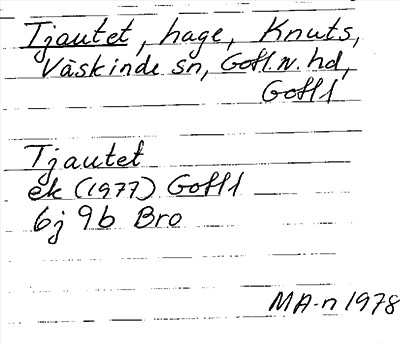 Tjautet, hage, Knuts,
Väskinde sn, Gotl. N. hd,
Gotl
Tjautet
ek (1977) Gotl
6j 9b Bro
MA-n 1978